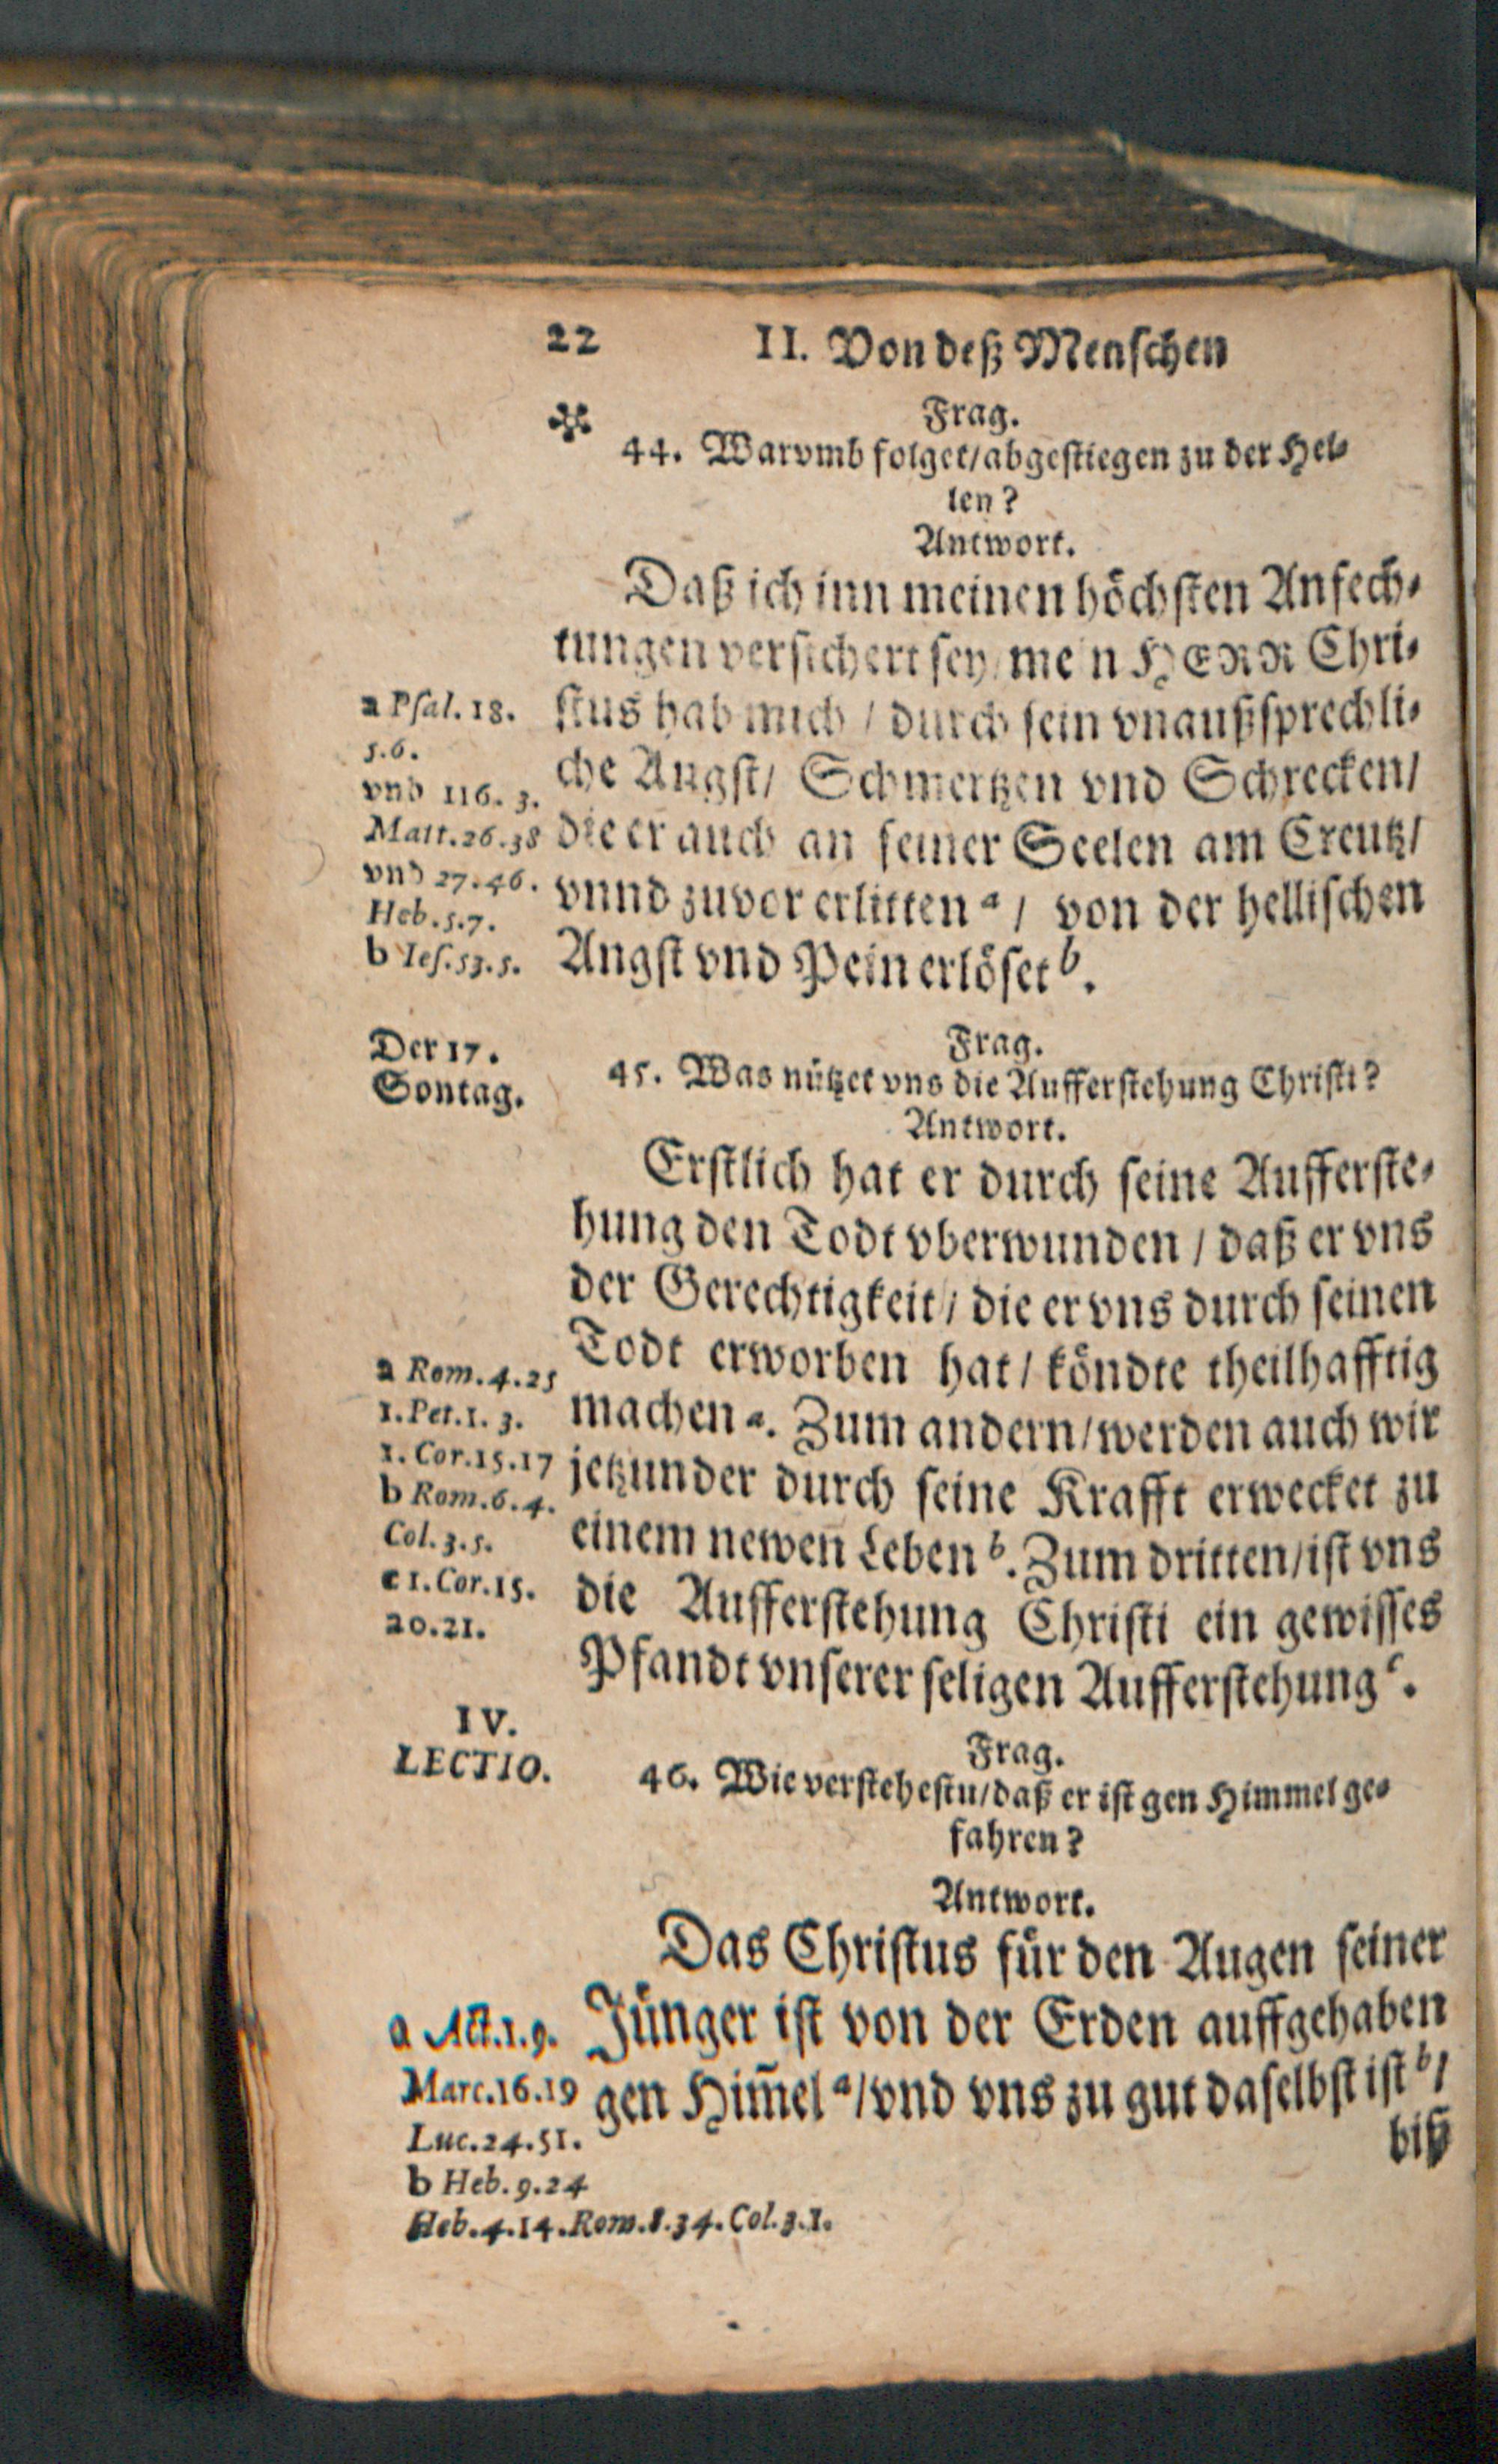 22 II. Von deß Menschen
Frag.
44. Warvmb folget/abgestiegen zu der Hel-
len?
Antwort.
Daß ich inn meinen höchsten Anfech-
tungen versichert sey/ mein HERR Chri-
stus hab mich / durch sein vnaußsprechli-
che Angst/ Schmertzen vnd Schrecken/
die er auch an seiner Seelen am Creutz/
vnnd zuvor erlitten a / von der hellischen
Angst vnd Pein erlöset b.
a Psal. 18.
5.6.
vnd 116. 3.
Matt.26.38
vnd 27.46.
Heb.5.7.
b Ies.53.5.
Der 17.
Sontag.
Frag.
45. Was nützet vns die Aufferstehung Christi?
Antwort.
Erstlich hat er durch seine Aufferste-
hung den Todt vberwunden / daß er vns
der Gerechtigkeit/ die er vns durch seinen
Todt erworben hat/ köndte theilhafftig
machen a. Zum andern/werden auch wir
jetzunder durch seine Krafft erwecket zu
einem newen Leben b. Zum dritten/ist vns
die Aufferstehung Christi ein gewisses
Pfandt vnserer seligen Aufferstehung c.
a Rom.4.25
1.Pet.1. 3.
1. Cor.15.17
b Rom.6.4.
Col.3.5.
c 1.Cor.15.
20.21.
IV.
LECTIO.
Frag.
46. Wie verstehestu/daß er ist gen Himmel ge-
fahren?
Antwort.
Das Christus für den Augen seiner
Jünger ist von der Erden auffgehaben
gen Him̄el a/vnd vns zu gut daselbst ist b/
biß
a Act.1.9.
Marc.16.19
Luc.24.51.
b Heb.9.24
Heb.4.14.Rom.8.34.Col.3.1.